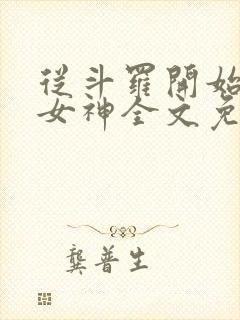 從斗羅開始
女神全文免
龔普生